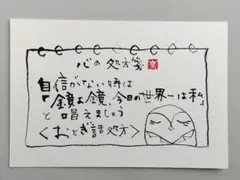 心の処方箋
自信がない時は
「鏡よ鏡、今日の世界一は私」
と唱えましょう
<おとぎ話処方>